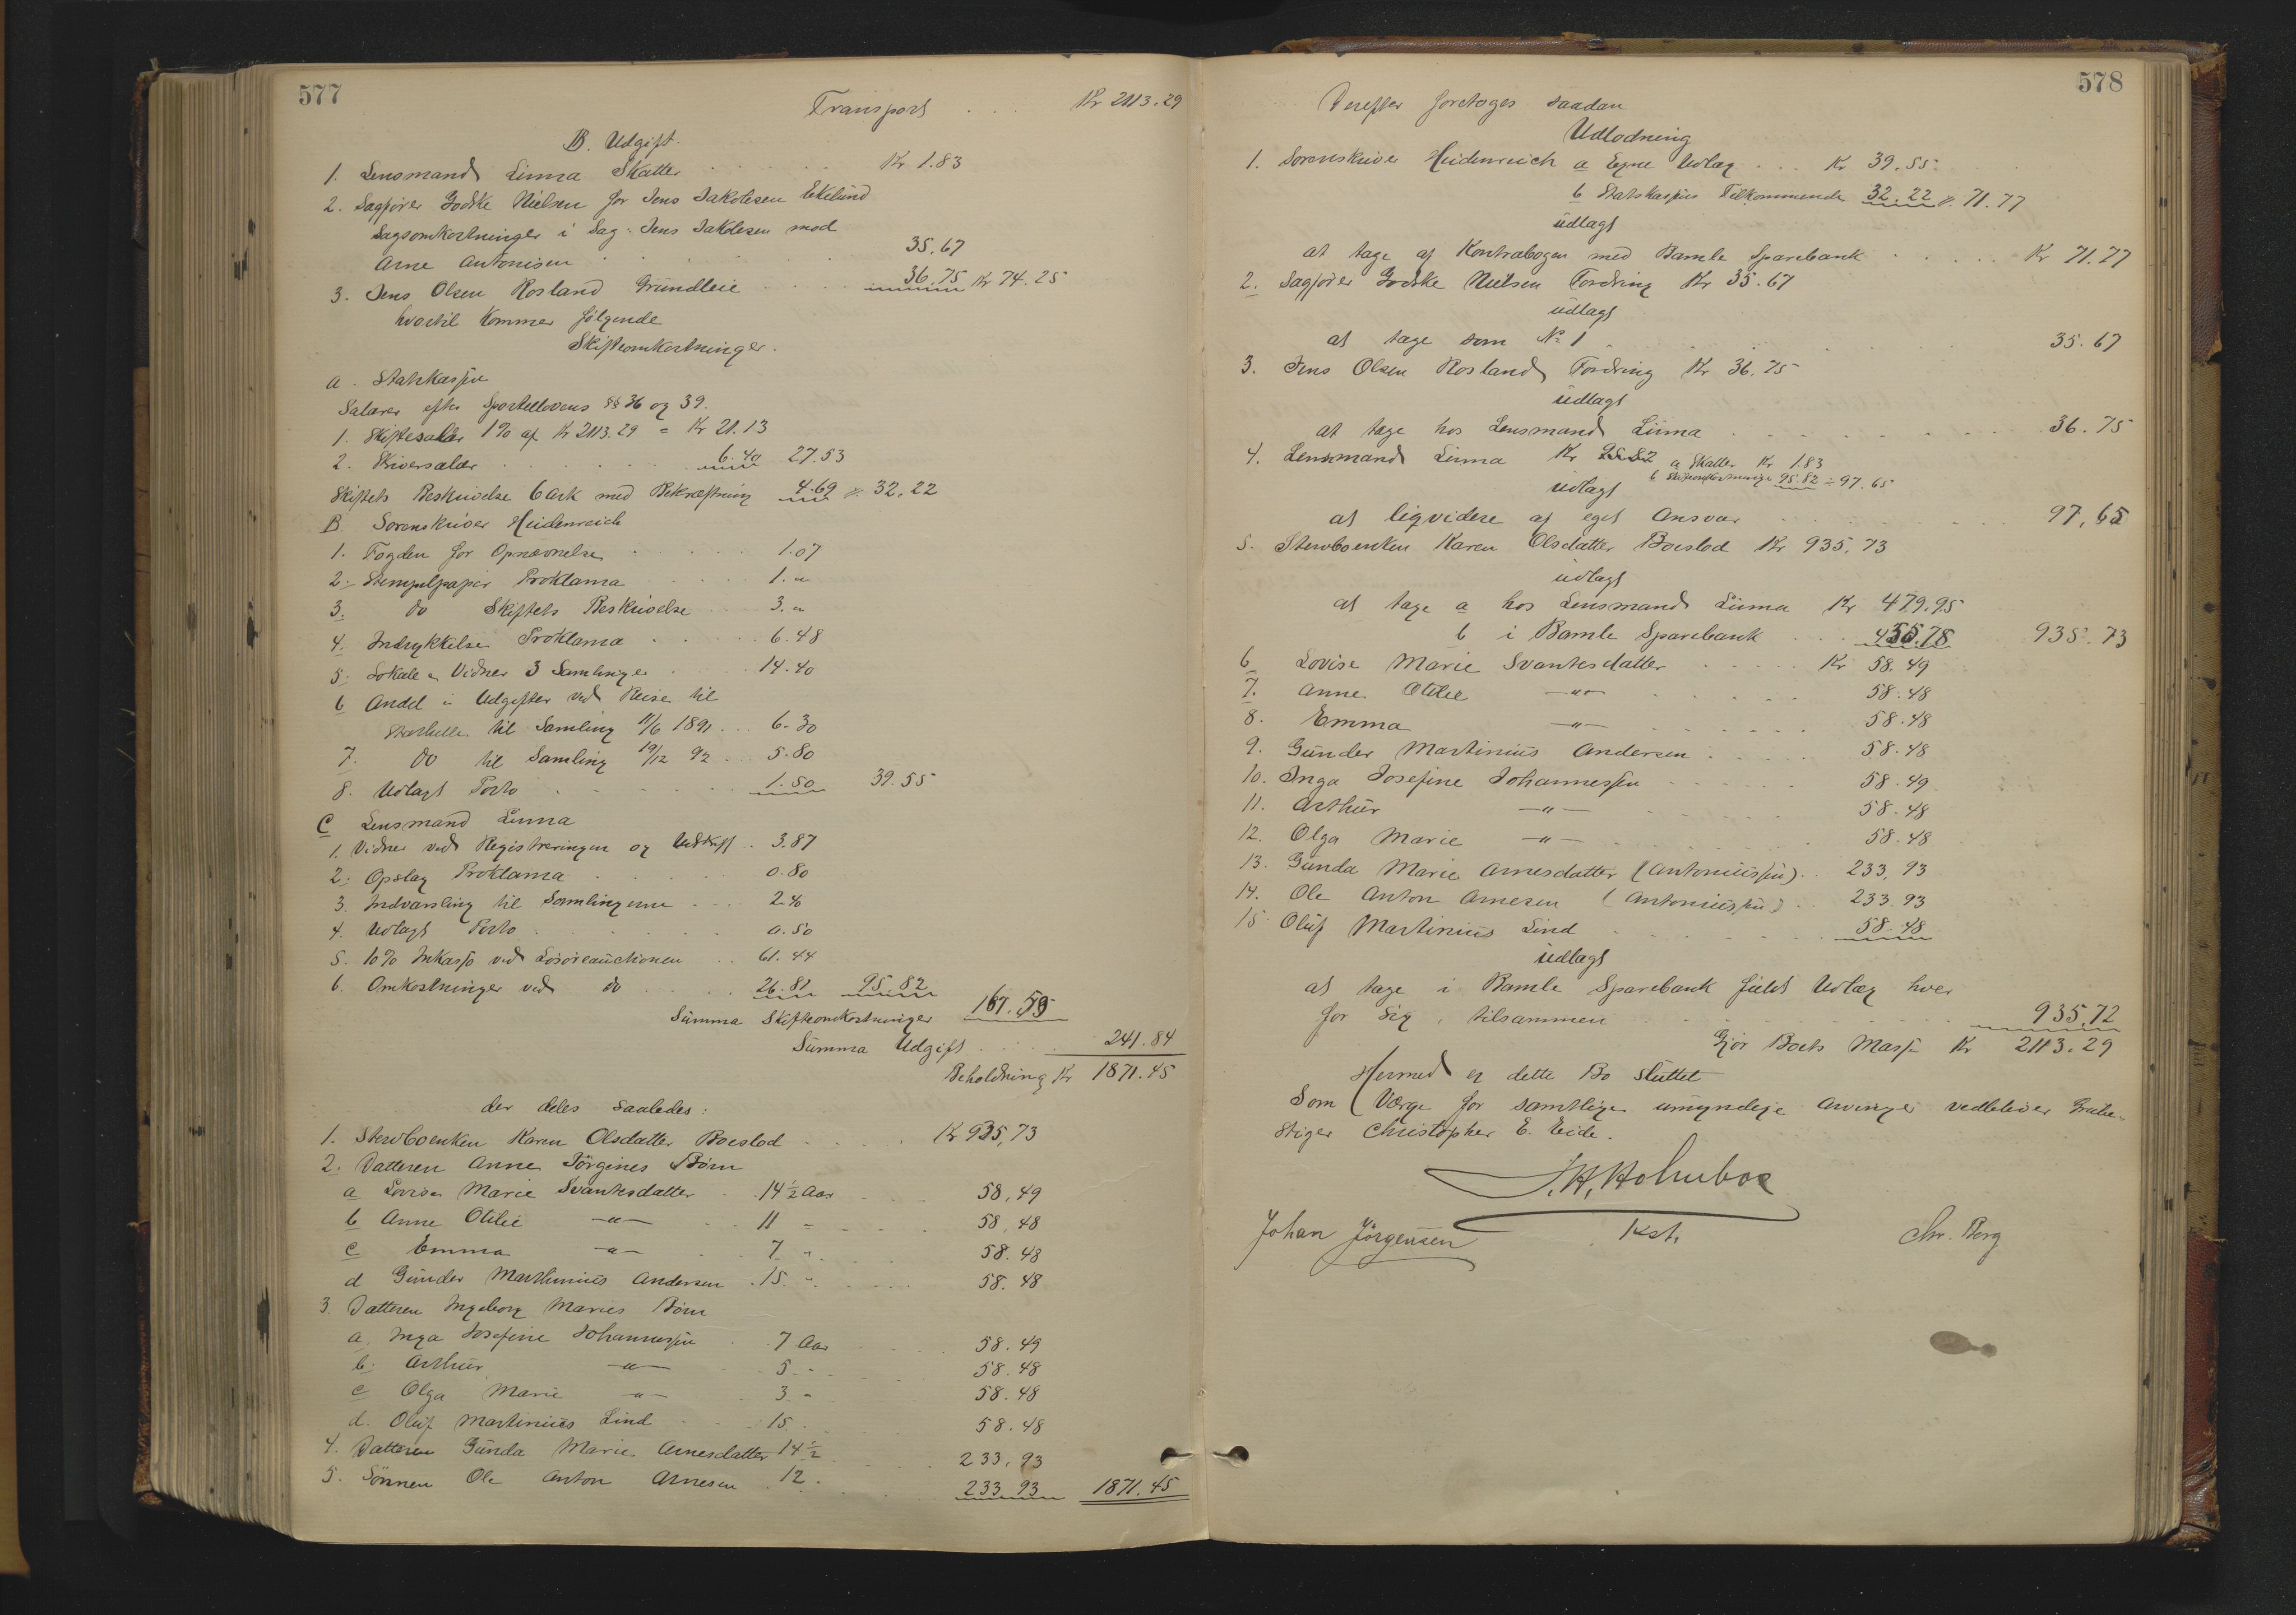 577
Transport . . . Kr 2113.29
B. Udgift.
1. Lensmand Linna Skatter . . . . . . Kr 1.83
2. Sagfører Godske Nielsen for Jens Jakobsen Eklund
Sagsomkostninger i Sag: Jens Jakobsen mod
Arne Antonisen . . . . . 35.67
3. Jens Olsen Rosland Grundleie . . . . . 36.75 Kr 74.25
hvortil kommer følgende
Skifteomkostninger.
a. Statskassen
Salarer efter Sportellovens §§ 36 og 39.
1. Skiftesalær 1% af Kr 2113.29 = Kr 21.13
2. Skriversalær . . . . . . 6.40 27.53
Skiftets Beskrivelse 6 Ark med Bekræftning 4.69 32.22
B Sorenskriver Heidenreich
1. Fogden for Opnævnelse . . . . . 1.07
2. Stempelpapir Proklama . . . . 1. "
3. do Skiftets Beskrivelse . . 3. "
4. Indrykkelse Proklama . . . . 6.48
5. Lokale & Vidner 3 Samlinger . . 14.40
6 Andel i Udgifter ved Reise til
til Samling 11/6 1891 . . 6.30
7. do til Samling 19/12 92 . . 5.80
8. Udlagt Porto . . . . . . 1.50 39.55
C Lensmand Linna
1. Vidner ved Registreringen og Udskrift . . 3.87
2. Opslag Proklama . . . . . 0.80
3. Indvarsling til Samlingerne . . . 2.40
4. Udlagt Porto . . . . . . 0.50
5. 10% Inkasso ved Løsøreauctionen . . 61.44
6. Omkostninger ved do . . . . 26.81 95.82
Summa Skifteomkostninger 167.59
Summa Udgift . . . . 241.84
Beholdning Kr 1871.45
der deles saaledes:
1. Stervboenken Karen Olsdatter Boeslod . . . . Kr 935,73
2. Datteren Anne Jörgines Børn
a Lovise Marie Svantesdatter . 14½ Aar . . . 58,49
b Anne Otilie —"— . . 11 - . . . 58,48
c Emma —"— . . 7 " . . . 58.48
d Gunder Marthinius Andersen . 15. " . . . 58.48
3. Datteren Ingeborg Maries Børn
a. Inga Josefine Johannessen . 7 Aar . . . 58.49
b. Arthur —"— . . 5 - . . . 58.48
c Olga Marie —"— . . 3 - . . . 58.48
d. Oluf Martinius Lind . . 15. . . . 58.48
4. Datteren Gunda Marie Arnesdatter 14½ . . . . 233,93
5. Sönnen Ole Anton Arnesen . 12. . . . . 233.93 1871.45
578
Derefter foretoges saadan
Udlodning
1. Sorenskriver Heidenreich a Egne Udlæg . . . Kr 39.55.
b Statskassens Tilkommende 32.22 71.77
udlagt
at tage af Kontrabogen med Bamle Sparebank . . . . . Kr 71.77
2. Sagfører Godske Nielsen Fordring Kr 35.67
udlagt
at tage som No 1 . . . . . . . 35.67
3. Jens Olsen Rosland Fordring Kr 36.75
udlagt
at tage hos Lensmand Linna . . . . . . . 36.75
4. Lensmand Linna Kr 95.82 a Skatter Kr 1.83
b Skifteomkostninger 95.82 = 97.65
udlagt
at liqvidere af eget Ansvar . . . . . . 97,65
5. Stervboenken Karen Olsdatter Boeslod Kr 935,73
udlagt
at tage a hos Lensmand Linna Kr 479.95
b i Bamle Sparebank . . . 455.78 935.73
6 Lovise Marie Svantesdatter . . . . . Kr 58.49
7. Anne Otilie —"— . . . . . 58.48
8. Emma —"— . . . . . 58.48
9. Gunder Martinius Andersen . . . . . 58.48
10. Inga Josefine Johannessen . . . . . 58.49
11. Arthur —"— . . . . . 58.48
12. Olga Marie —"— . . . . . 58.48
13. Gunda Marie Arnesdatter (Antoniussen) . . 233,93
14. Ole Anton Arnesen (Antoniussen) . . 233.93
15 Oluf Martinius Lind . . . . . 58.48
udlagt
at tage i Bamle Sparebank fuldt Udlæg hver
for sig, tilsammen . . . . . . 935,72
Gjør Boets Masse Kr 2113.29
Hermed er dette Bo sluttet
Som Værge for samtlige umyndige Arvinger vedbliver Grube-
stiger Christopher E. Eide.
J. H. Holmboe
Kst.
Johan Jörgensen
Chr. Berg